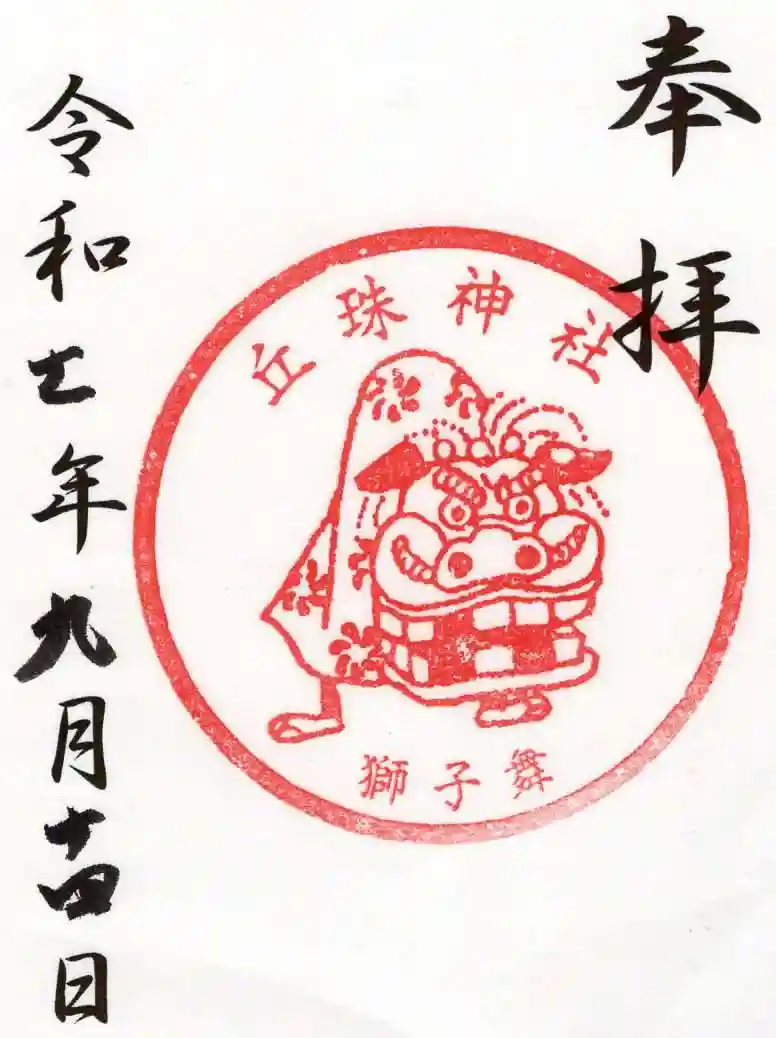 奉拝
丘珠神社
獅子舞
令和七年九月十四日